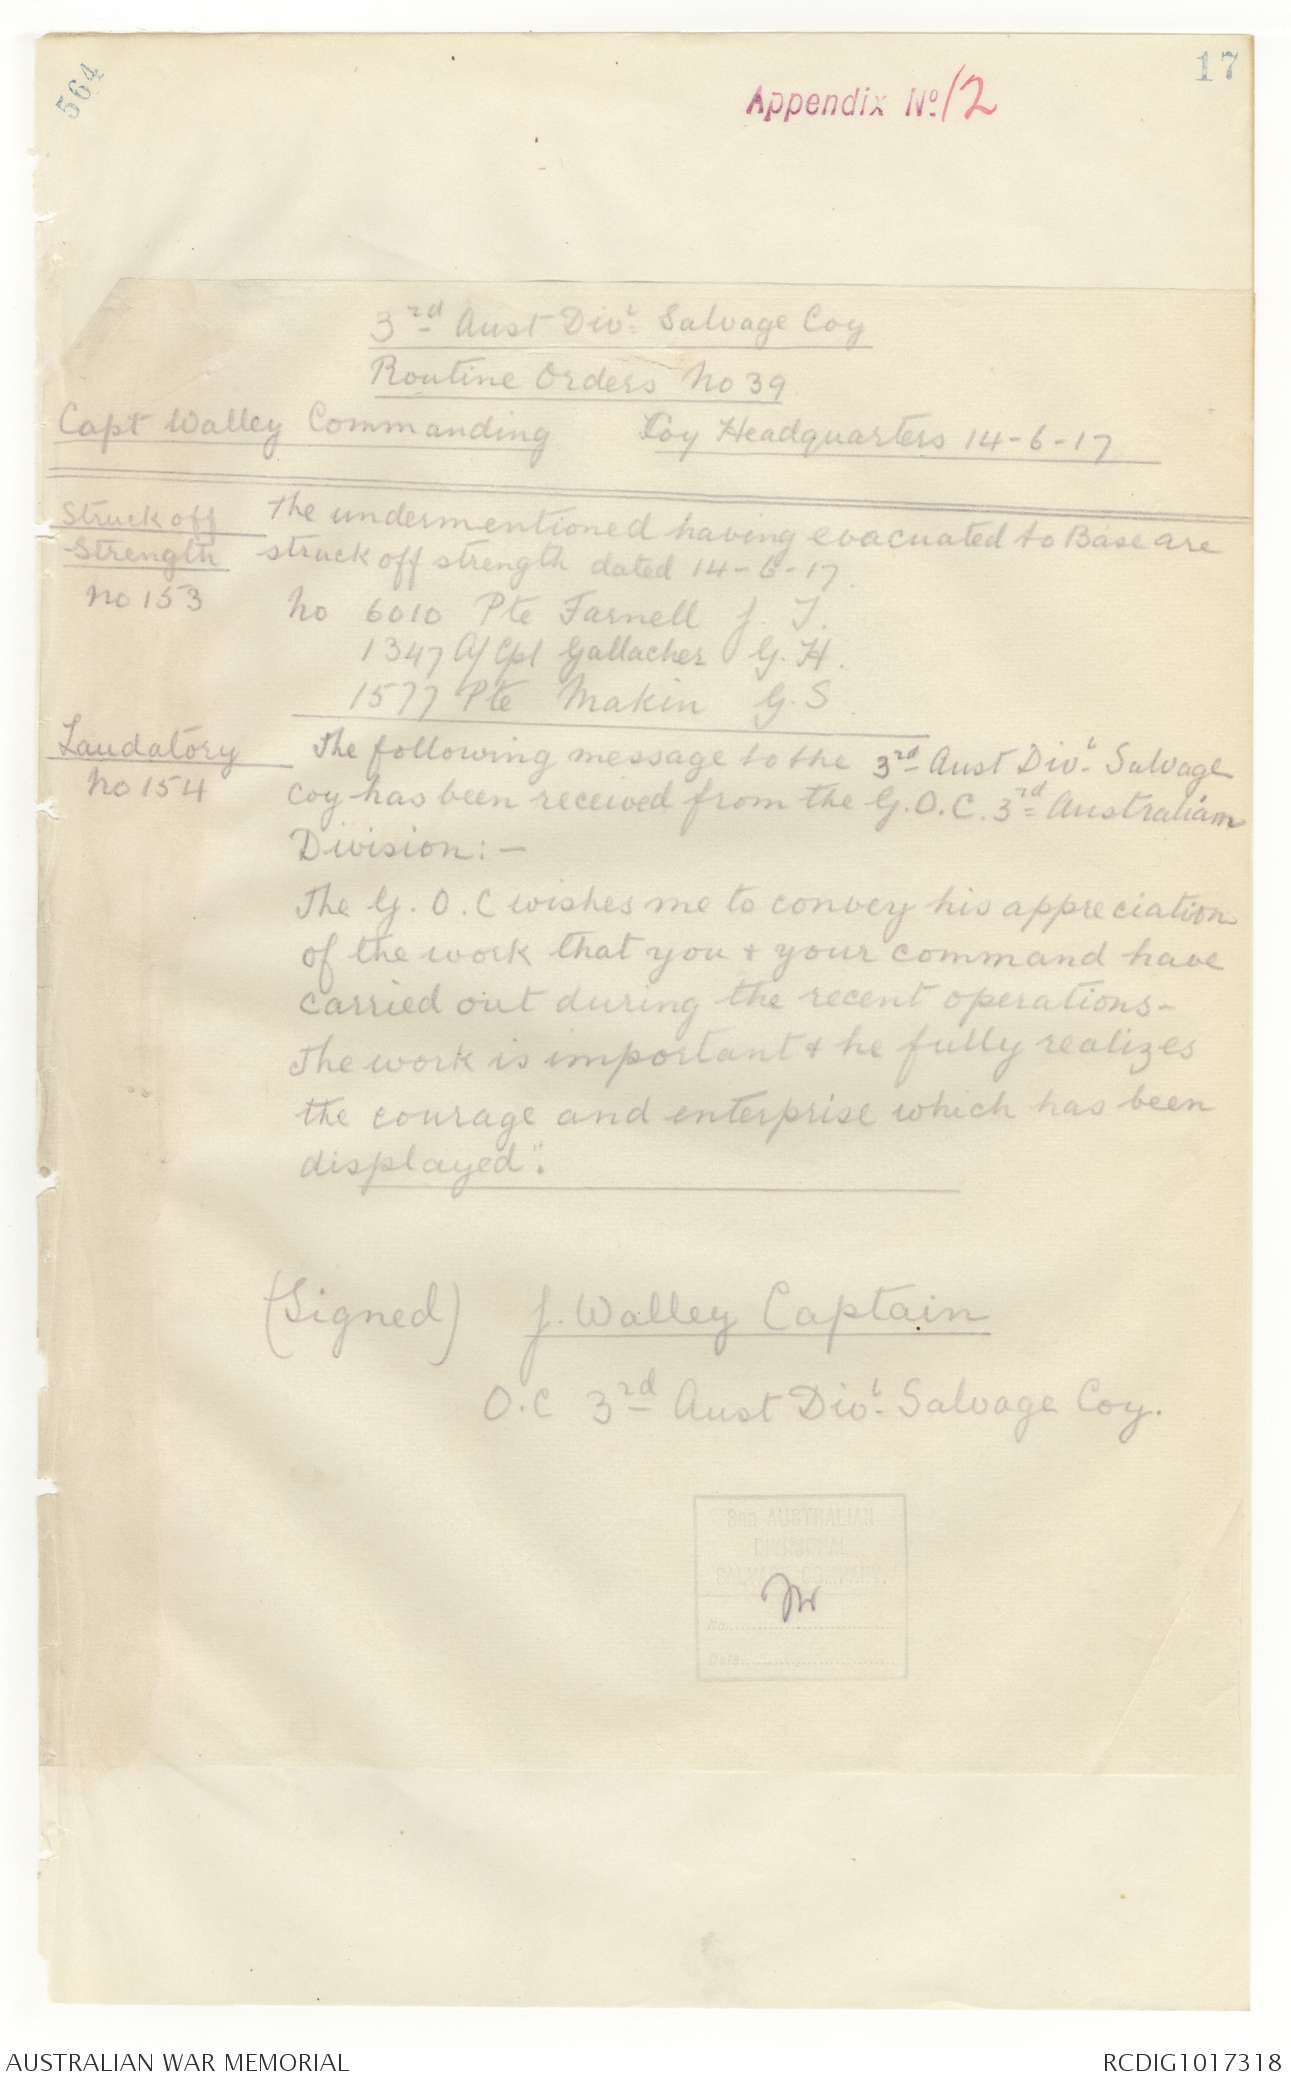 564
17
Appendix No 12
3rd Aust Divl Salvage Coy
Routine Orders No 39
Capt Walley Commanding Coy Headquarters 14-6-17
Struck off
Strength
No 153
The undermentioned having evacuated to Base are
struck off strength dated 14-6-17.
No 6010 Pte Farnell J. T.
1347 A/Cpl Gallacher G. H.
1577 Pte Makin G. S.
Laudatory
No 154
The following message to the 3rd Aust Divl Salvage
Coy has been received from the G.O.C. 3rd Australian
Division:-
The G.O.C wishes me to convey his appreciation
of the work that you + your command have
carried out during the recent operations-
The work is important + he fully realizes
the courage and enterprise which has been
displayed".
(Signed) J. Walley Captain
O.C 3rd Aust Divl Salvage Coy.
3RD AUSTRALIAN
DIVISIONAL
SALVAGE COMPANY.
No.
Date
AUSTRALIAN WAR MEMORIAL
RCDIG1017318